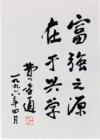 富强之源
在于兴学
费孝通
一九九六年四月